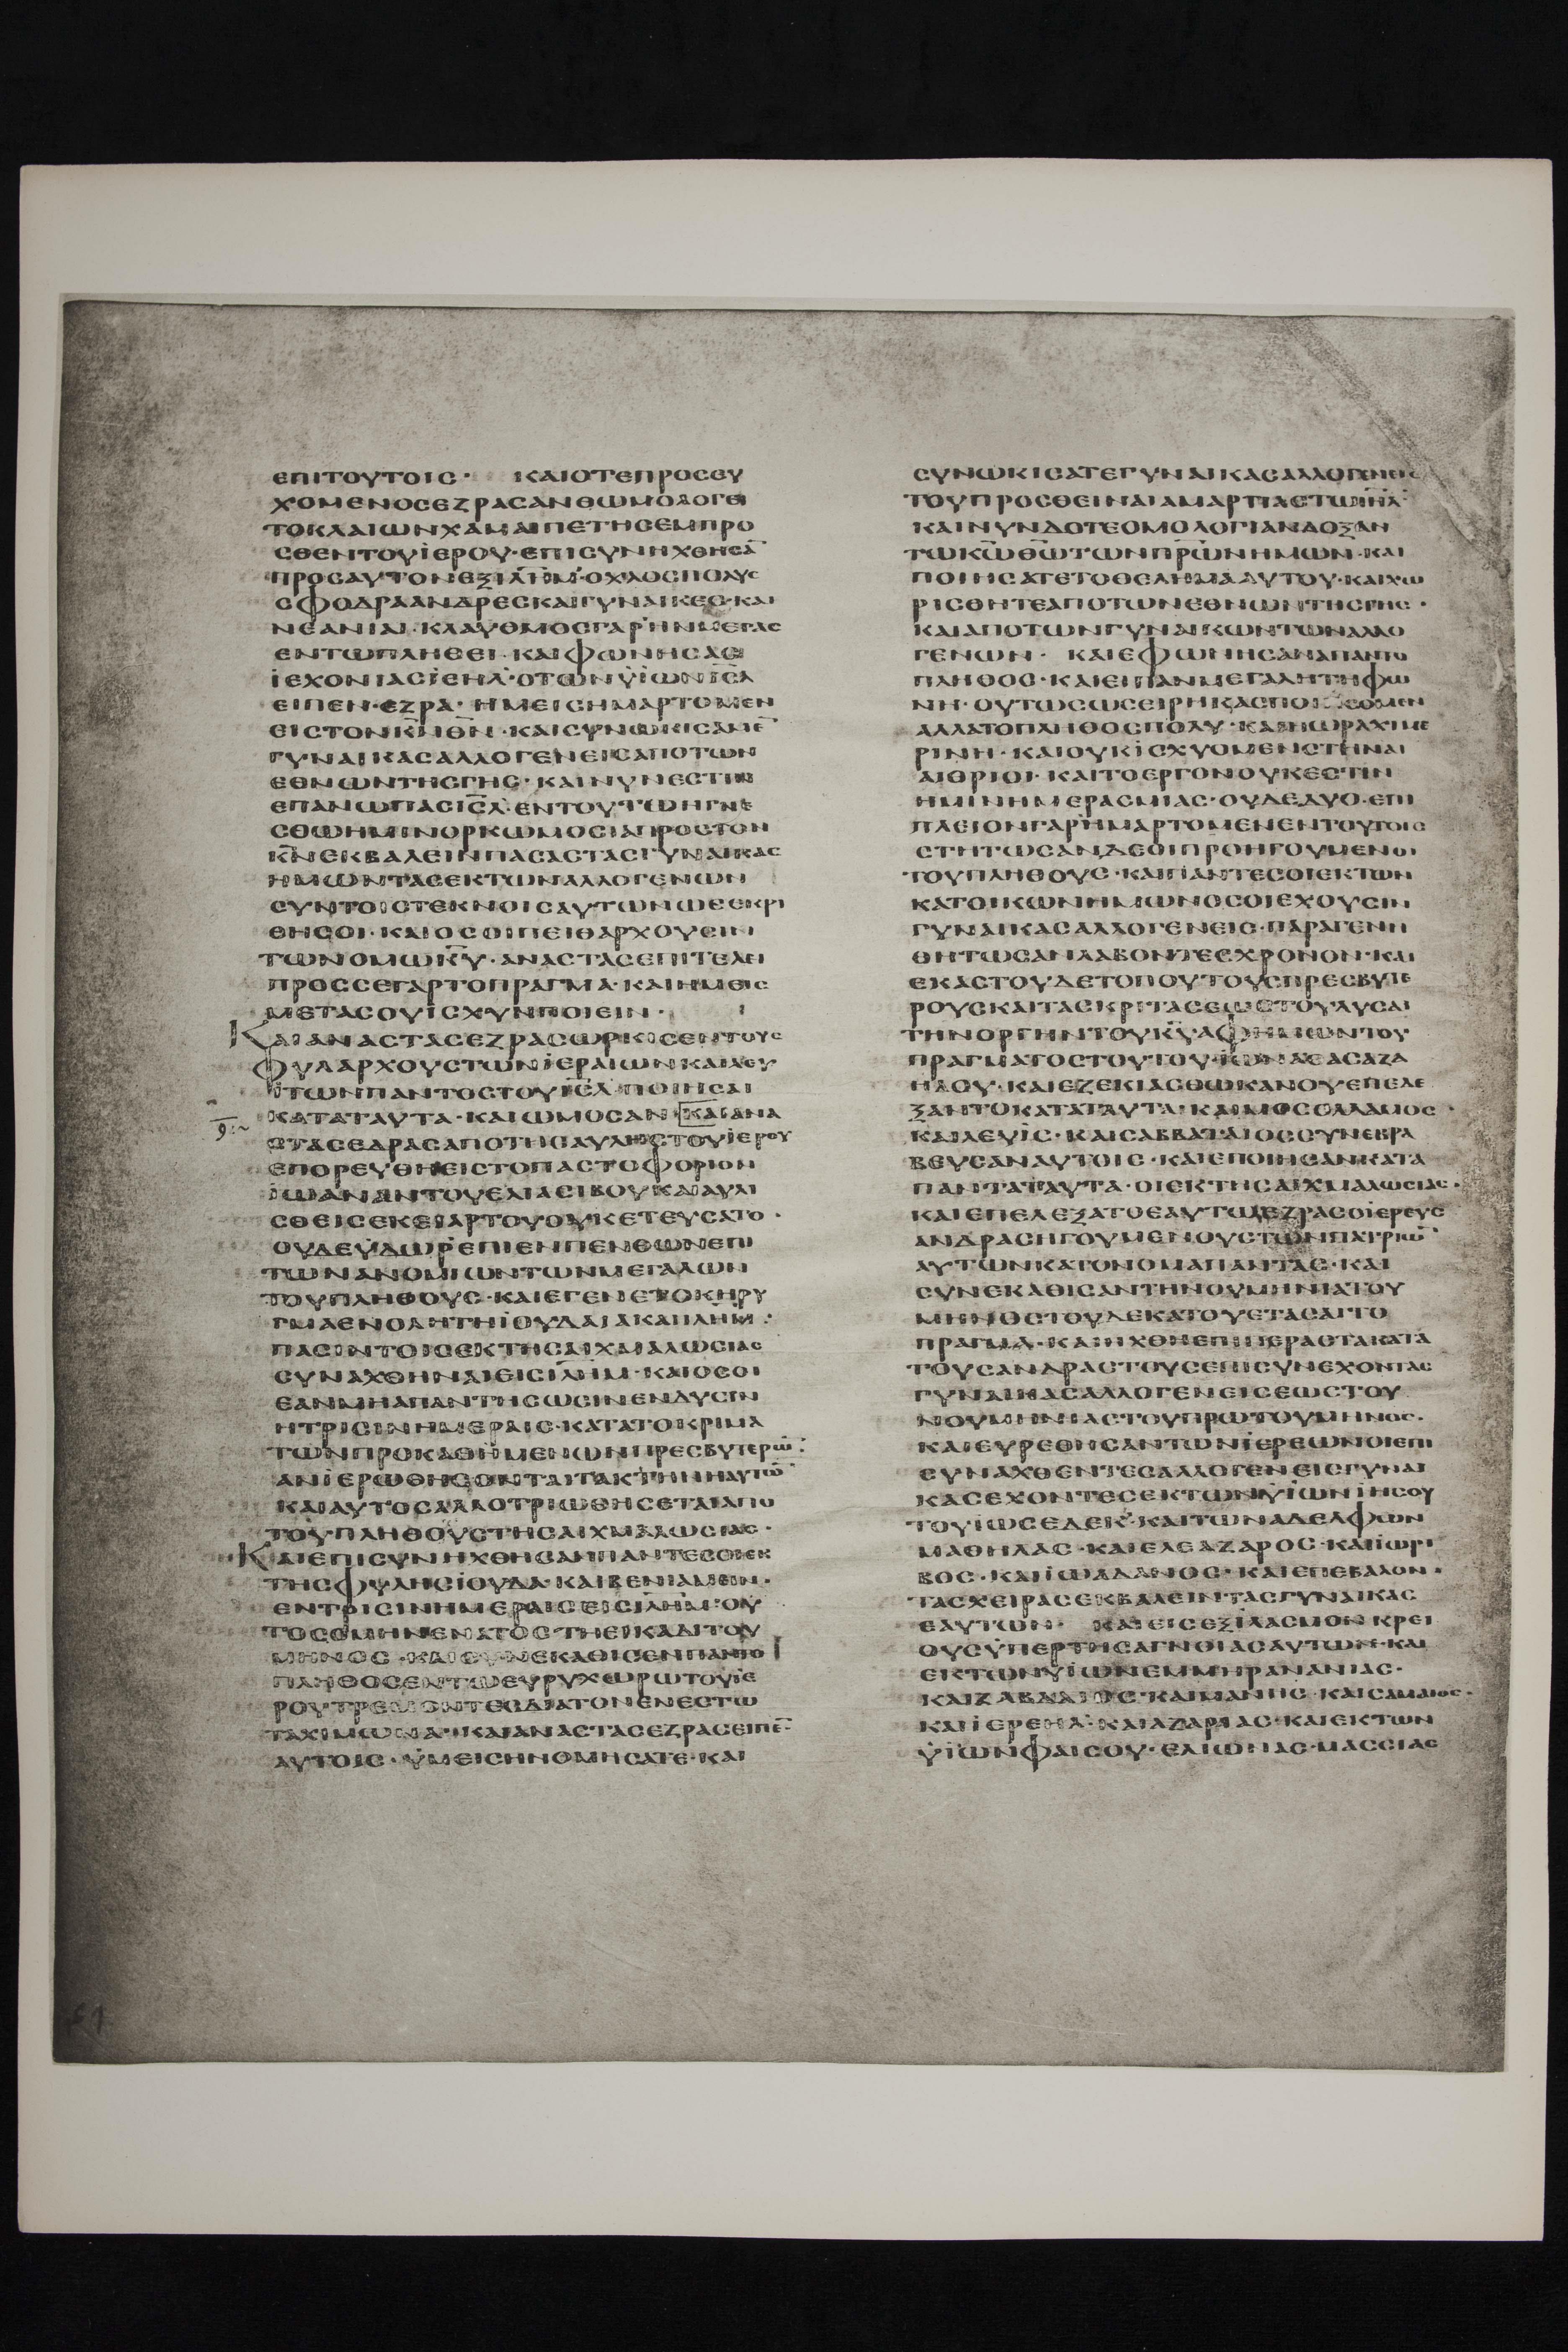 ΕΠΙΤΟΥΤΟΙΣ· ΚΑΙΟΤΕΠΡΟΣΕΥ
ΧΟΜΕΝΟΣΕΖΡΑΣΑΝΘΩΜΟΛΟΓΕΙ
ΤΟΚΛΑΙΩΝΧΑΜΑΙΠΕΤΗΣΕΜΠΡΟ
ΣΘΕΝΤΟΥΪΕΡΟΥ·ΕΠΙΣΥΝΗΧΘΗΣΑ̅
ΠΡΟΣΑΥΤΟΝΕΞΙΛΗ̅Μ·ΟΧΛΟΣΠΟΛΥΣ
ΣΦΟΔΡΑΑΝΔΡΕΣΚΑΙΓΥΝΑΙΚΕΣ·ΚΑΙ
ΝΕΑΝΙΑΙ·ΚΛΑΥΘΜΟΣΓΑΡΗΝΜΕΓΑΣ
ΕΝΤΩΠΛΗΘΕΙ·ΚΑΙΦΩΝΗΣΑΣ
ΪΕΧΟΝΙΑΣΪΕΗΛ·ΟΤΩΝΫΪΩΝΙ̅Σ̅Λ
ΕΙΠΕΝ·ΕΖΡΑ·ΗΜΕΙΣΗΜΑΡΤΟΜΕΝ
ΕΙΣΤΟΝΚ̅Ν̅Θ̅Ν̅·ΚΑΙΣΥΝΩΚΙΣΑΜΕ̅
ΓΥΝΑΙΚΑΣΑΛΛΟΓΕΝΕΙΣΑΠΟΤΩΝ
ΕΘΝΩΝΤΗΣΓΗΣ·ΚΑΙΝΥΝΕΣΤΙΝ
ΕΠΑΝΩΠΑΣΙ̅Σ̅Λ·ΕΝΤΟΥΤΩΗΓΝΕ
ΣΘΩΗΜΙΝΟΡΚΩΜΟΣΙΑΠΡΟΣΤΟΝ
Κ̅Ν̅ΕΚΒΑΛΕΙΝΠΑΣΑΣΤΑΣΓΥΝΑΙΚΑΣ
ΗΜΩΝΤΑΣΕΚΤΩΝΑΛΛΟΓΕΝΩΝ
ΣΥΝΤΟΙΣΤΕΚΝΟΙΣΑΥΤΩΝΩΣΕΚΡΙ
ΘΗΣΟΙ·ΚΑΙΟΣΟΙΠΕΙΘΑΡΧΟΥΣΙΝ
ΤΩΝΟΜΩΚ̅Υ̅·ΑΝΑΣΤΑΣΕΠΙΤΕΛΕΙ
ΠΡΟΣΣΕΓΑΡΤΟΠΡΑΓΜΑ·ΚΑΙΗΜΕΙΣ
ΜΕΤΑΣΟΥΪΣΧΥΝΠΟΙΕΙΝ·
ΚΑΙΑΝΑΣΤΑΣΕΖΡΑΣΩΡΚΙΣΕΝΤΟΥΣ
ΦΥΛΑΡΧΟΥΣΤΩΝΪΕΡΑΙΩΝΚΑΙΛΕΥ
ΙΤΩΝΠΑΝΤΟΣΤΟΥΙ̅Σ̅Λ·ΠΟΙΗΣΑΙ
ΚΑΤΑΤΑΥΤΑ·ΚΑΙΩΜΟΣΑΝ ΚΑΙΑΝΑ
ΣΤΑΣΕΔΡΑΣΑΠΟΤΗΣΑΥΛΗΣΤΟΥΪΕΡΟΥ
ΕΠΟΡΕΥΘΗΕΙΣΤΟΠΑΣΤΟΦΟΡΙΟΝ
ΪΩΑΝΑΝΤΟΥΕΛΙΑΣΙΒΟΥΚΑΙΑΥΛΙ
ΣΘΕΙΣΕΚΕΙΑΡΤΟΥΟΥΚΕΤΕΥΣΑΤΟ·
ΟΥΔΕΫΔΩΡΕΠΙΕΝΠΕΝΘΩΝΕΠΙ
ΤΩΝΑΝΟΜΙΩΝΤΩΝΜΕΓΑΛΩΝ
ΤΟΥΠΛΗΘΟΥΣ·ΚΑΙΕΓΕΝΕΤΟΚΗΡΥ
ΓΜΑΕΝΟΛΗΤΗΪΟΥΔΑΙΑΚΑΙΙΛΗΜ·
ΠΑΣΙΝΤΟΙΣΕΚΤΗΣΑΙΧΜΑΛΩΣΙΑΣ
ΣΥΝΑΧΘΗΝΑΙΕΙΣΙΛΗ̅Μ·ΚΑΙΟΣΟΙ
ΕΑΝΜΗΑΠΑΝΤΗΣΩΣΙΝΕΝΔΥΣΙΝ
ΗΤΡΙΣΙΝΗΜΕΡΑΙΣ·ΚΑΤΑΤΟΚΡΙΜΑ
ΤΩΝΠΡΟΚΑΘΗΜΕΝΩΝΠΡΕΣΒΥΤΕΡΩ̅·
ΑΝΪΕΡΩΘΗΣΟΝΤΑΙΤΑΚΤΗΝΗΑΥΤΩ̅
ΚΑΙΑΥΤΟΣΑΛΛΟΤΡΙΩΘΗΣΕΤΑΙΑΠΟ
ΤΟΥΠΛΗΘΟΥΣΤΗΣΑΙΧΜΑΛΩΣΙΑΣ·
ΚΑΙΕΠΙΣΥΝΗΧΘΗΣΑΝΠΑΝΤΕΣΟΙΕΚ
ΤΗΣΦΥΛΗΣΪΟΥΔΑ·ΚΑΙΒΕΝΙΑΜΕΙΝ·
ΕΝΤΡΙΣΙΝΗΜΕΡΑΙΣΕΙΣΙΛΗΜ·ΟΥ
ΤΟΣΟΜΗΝΕΝΑΤΟΣ·ΤΗΕΙΚΑΔΙΤΟΥ
ΜΗΝΟΣ·ΚΑΙΣΥΝΕΚΑΘΙΣΕΝΠΑΝΤΟ
ΠΛΗΘΟΣΕΝΤΩΕΥΡΥΧΩΡΩΤΟΥΪΕ
ΡΟΥΤΡΕΜΟΝΤΕΣΔΙΑΤΟΝΕΝΕΣΤΩ
ΤΑΧΙΜΩΝΑ·ΚΑΙΑΝΑΣΤΑΣΕΖΡΑΣΕΙΠΕ̅
ΑΥΤΟΙΣ·ΫΜΕΙΣΗΝΟΜΗΣΑΤΕ·ΚΑΙ
ΣΥΝΩΚΙΣΑΤΕΓΥΝΑΙΚΑΣΑΛΛΟΓΕΝΕΙΣ
ΤΟΥΠΡΟΣΘΕΙΝΑΙΑΜΑΡΤΙΑΣΤΩΙΗ̅Λ
ΚΑΙΝΥΝΔΟΤΕΟΜΟΛΟΓΙΑΝΔΟΞΑΝ
ΤΩΚ̅Ω̅Θ̅Ω̅ΤΩΝΠ̅Ρ̅Ω̅ΝΗΜΩΝ·ΚΑΙ
ΠΟΙΗΣΑΤΕΤΟΘΕΛΗΜΑΑΥΤΟΥ·ΚΑΙΧΩ
ΡΙΣΘΗΤΕΑΠΟΤΩΝΕΘΝΩΝΤΗΣΓΗΣ·
ΚΑΙΑΠΟΤΩΝΓΥΝΑΙΚΩΝΤΩΝΑΛΛΟ
ΓΕΝΩΝ· ΚΑΙΕΦΩΝΗΣΑΝΑΠΑΝΤΟ
ΠΛΗΘΟΣ·ΚΑΙΕΙΠΑΝΜΕΓΑΛΗΤΗΦΩ
ΝΗ·ΟΥΤΩΣΩΣΕΙΡΗΚΑΣΠΟΙΗΣΟΜΕΝ
ΑΛΛΑΤΟΠΛΗΘΟΣΠΟΛΥ·ΚΑΙΗΩΡΑΧΙΜΕ
ΡΙΝΗ·ΚΑΙΟΥΚΪΣΧΥΟΜΕΝΣΤΗΝΑΙ
ΑΙΘΡΙΟΙ·ΚΑΙΤΟΕΡΓΟΝΟΥΚΕΣΤΙΝ
ΗΜΙΝΗΜΕΡΑΣΜΙΑΣ·ΟΥΔΕΔΥΟ·ΕΠΙ
ΠΛΕΙΟΝΓΑΡΗΜΑΡΤΟΜΕΝΕΝΤΟΥΤΟΙΣ
ΣΤΗΤΩΣΑΝΔΕΟΙΠΡΟΗΓΟΥΜΕΝΟΙ
ΤΟΥΠΛΗΘΟΥΣ·ΚΑΙΠΑΝΤΕΣΟΙΕΚΤΩΝ
ΚΑΤΟΙΚΩΝΗΜΩΝΟΣΟΙΕΧΟΥΣΙΝ
ΓΥΝΑΙΚΑΣΑΛΛΟΓΕΝΕΙΣ·ΠΑΡΑΓΕΝΗ
ΘΗΤΩΣΑΝΛΑΒΟΝΤΕΣΧΡΟΝΟΝ·ΚΑΙ
ΕΚΑΣΤΟΥΔΕΤΟΠΟΥΤΟΥΣΠΡΕΣΒΥΤΕ
ΡΟΥΣΚΑΙΤΑΣΚΡΙΤΑΣΕΩΣΤΟΥΛΥΣΑΙ
ΤΗΝΟΡΓΗΝΤΟΥΚ̅Υ̅ΑΦΗΜΩΝΤΟΥ
ΠΡΑΓΜΑΤΟΣΤΟΥΤΟΥ·ΪΩΝΑΣΑΖΑ
ΗΛΟΥ·ΚΑΙΕΖΕΚΙΑΣΘΩΚΑΝΟΥΕΠΕΔΕ
ΞΑΝΤΟΚΑΤΑΤΑΥΤΑ·ΚΑΙΜΟΣΟΛΛΑΜΟΣ·
ΚΑΙΛΕΥΪΣ·ΚΑΙΣΑΒΒΑΤΑΙΟΣΣΥΝΕΒΡΑ
ΒΕΥΣΑΝΑΥΤΟΙΣ·ΚΑΙΕΠΟΙΗΣΑΝΚΑΤΑ
ΠΑΝΤΑΤΑΥΤΑ·ΟΙΕΚΤΗΣΑΙΧΜΑΛΩΣΙΑΣ·
ΚΑΙΕΠΕΛΕΞΑΤΟΕΑΥΤΩΕΖΡΑΣΟΪΕΡΕΥΣ
ΑΝΔΡΑΣΗΓΟΥΜΕΝΟΥΣΤΩΝΠΑΤΡΙΩ̅
ΑΥΤΩΝΚΑΤΟΝΟΜΑΠΑΝΤΑΣ·ΚΑΙ
ΣΥΝΕΚΑΘΙΣΑΝΤΗΝΟΥΜΗΝΙΑΤΟΥ
ΜΗΝΟΣΤΟΥΔΕΚΑΤΟΥΕΤΑΣΑΙΤΟ
ΠΡΑΓΜΑ·ΚΑΙΗΧΘΗΕΠΙΠΕΡΑΣΤΑΚΑΤΑ
ΤΟΥΣΑΝΔΡΑΣΤΟΥΣΕΠΙΣΥΝΕΧΟΝΤΑΣ
ΓΥΝΑΙΚΑΣΑΛΛΟΓΕΝΕΙΣΕΩΣΤΟΥ
ΝΟΥΜΗΝΙΑΣΤΟΥΠΡΩΤΟΥΜΗΝΟΣ·
ΚΑΙΕΥΡΕΘΗΣΑΝΤΩΝΪΕΡΕΩΝΟΙΕΠΙ
ΣΥΝΑΧΘΕΝΤΕΣΑΛΛΟΓΕΝΕΙΣΓΥΝΑΙ
ΚΑΣΕΧΟΝΤΕΣΕΚΤΩΝΥΪΩΝΪΗΣΟΥ
ΤΟΥΪΩΣΕΔΕΚ·ΚΑΙΤΩΝΑΔΕΛΦΩΝ
ΜΑΘΗΛΑΣ·ΚΑΙΕΛΕΑΖΑΡΟΣ·ΚΑΙΪΩΡΙ
ΒΟΣ·ΚΑΙΪΩΑΔΑΝΟΣ·ΚΑΙΕΠΕΒΑΛΟΝ·
ΤΑΣΧΕΙΡΑΣΕΚΒΑΛΕΙΝΤΑΣΓΥΝΑΙΚΑΣ
ΕΑΥΤΩΝ· ΚΑΙΕΙΣΕΞΙΛΑΣΜΟΝΚΡΕΙ
ΟΥΣΫΠΕΡΤΗΣΑΓΝΟΙΑΣΑΥΤΩΝ·ΚΑΙ
ΕΚΤΩΝΥΪΩΝΕΜΜΗΡΑΝΑΝΙΑΣ·
ΚΑΙΖΑΒΔΑΙΟΣ·ΚΑΙΜΑΝΗΣ·ΚΑΙΣΑΜΑΙΟΣ·
ΚΑΙΪΕΡΕΗΛ·ΚΑΙΑΖΑΡΙΑΣ·ΚΑΙΕΚΤΩΝ
ΫΪΩΝΦΑΙΣΟΥ·ΕΛΙΩΝΑΣ·ΜΑΣΣΙΑΣ